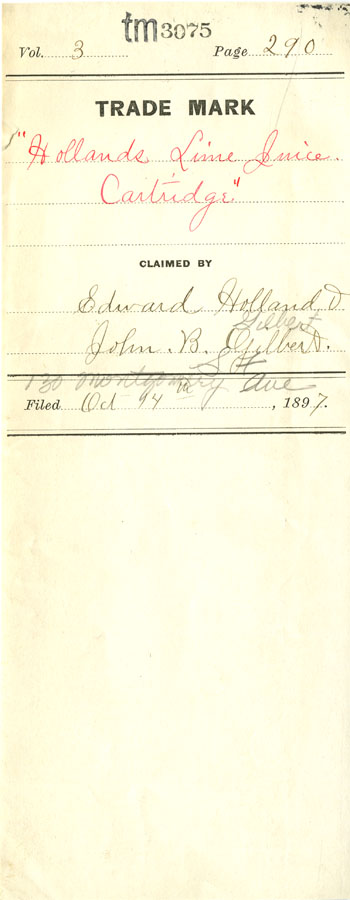 tm3075
Vol. 3 Page 290
TRADE MARK
"Hollands Lime Juice
Cartridge"
CLAIMED BY
Edward Holland &
Gilbert
John. B. Gilbert.
S F
130 Montgomery Ave
Filed Oct 14 th, 1897.